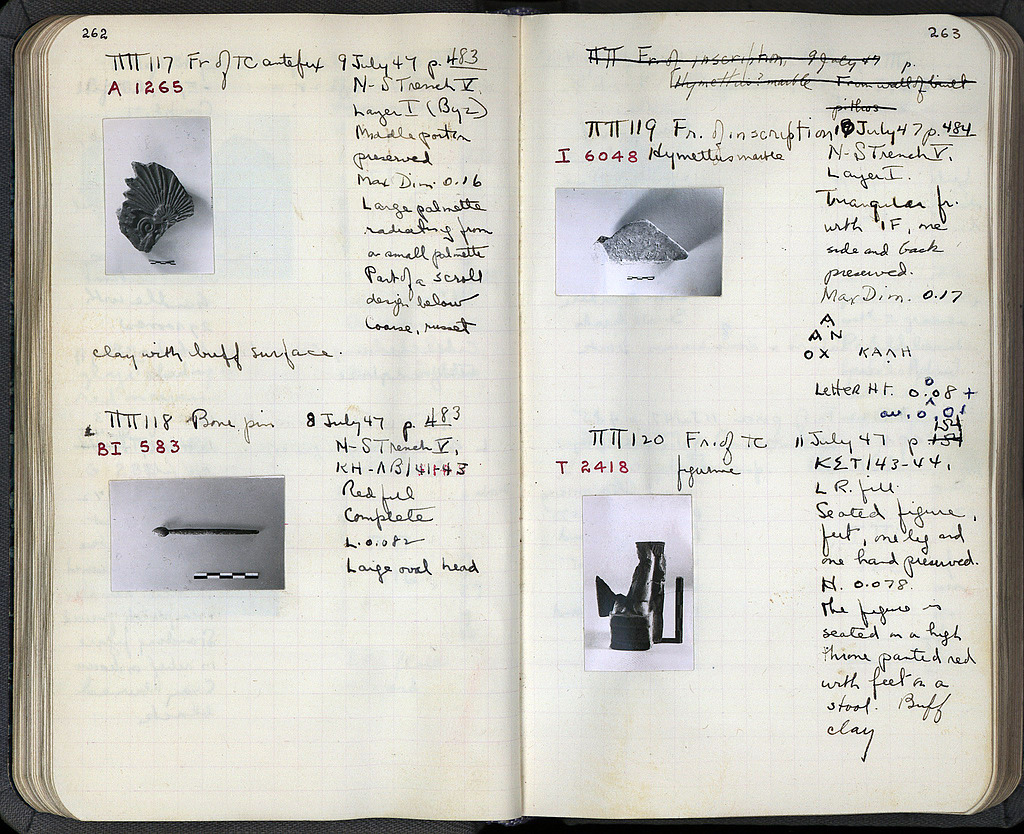 262
ΠΠ 117 Fr. of TC antefix 9 July 47 p. 483
A 1265
N-S Trench V.
Layer I (Byz)
Middle portion
preserved
Max Dim. 0.16
Large palmette
radiating from
a small palmette
Part of a scroll
design below
Coarse, russet
clay with buff surface.
ΠΠ 118 Bone pin 8 July 47 p. 483
BI 583
N-S Trench V,
ΚΗ-ΛΒ/41-43
Red fill
Complete
L. 0.082
Large oval head
263
ΠΠ Fr. of inscription, 9 July 47 p.
Hymettus? marble From wall of built
pithos
ΠΠ 119 Fr. of inscription 10 July 47 p. 484
I 6048 Hymettus marble
N-S Trench V.
Layer I.
Triangular fr.
with IF, one
side and back
preserved.
Max Dim. 0.17
Α
ΑΝ
ΟΧ ΚΑΛΗ
Letter Ht. 0.08 +
av. 0.0
ΠΠ 120 Fr. of TC 11 July 47 p. 184
T 2418 figurine
ΚΣΤ/43-44,
L R. fill.
Seated figure,
feet, one leg and
one hand preserved.
H. 0.078.
The figure is
seated on a high
throne painted red
with feet on a
stool. Buff
clay